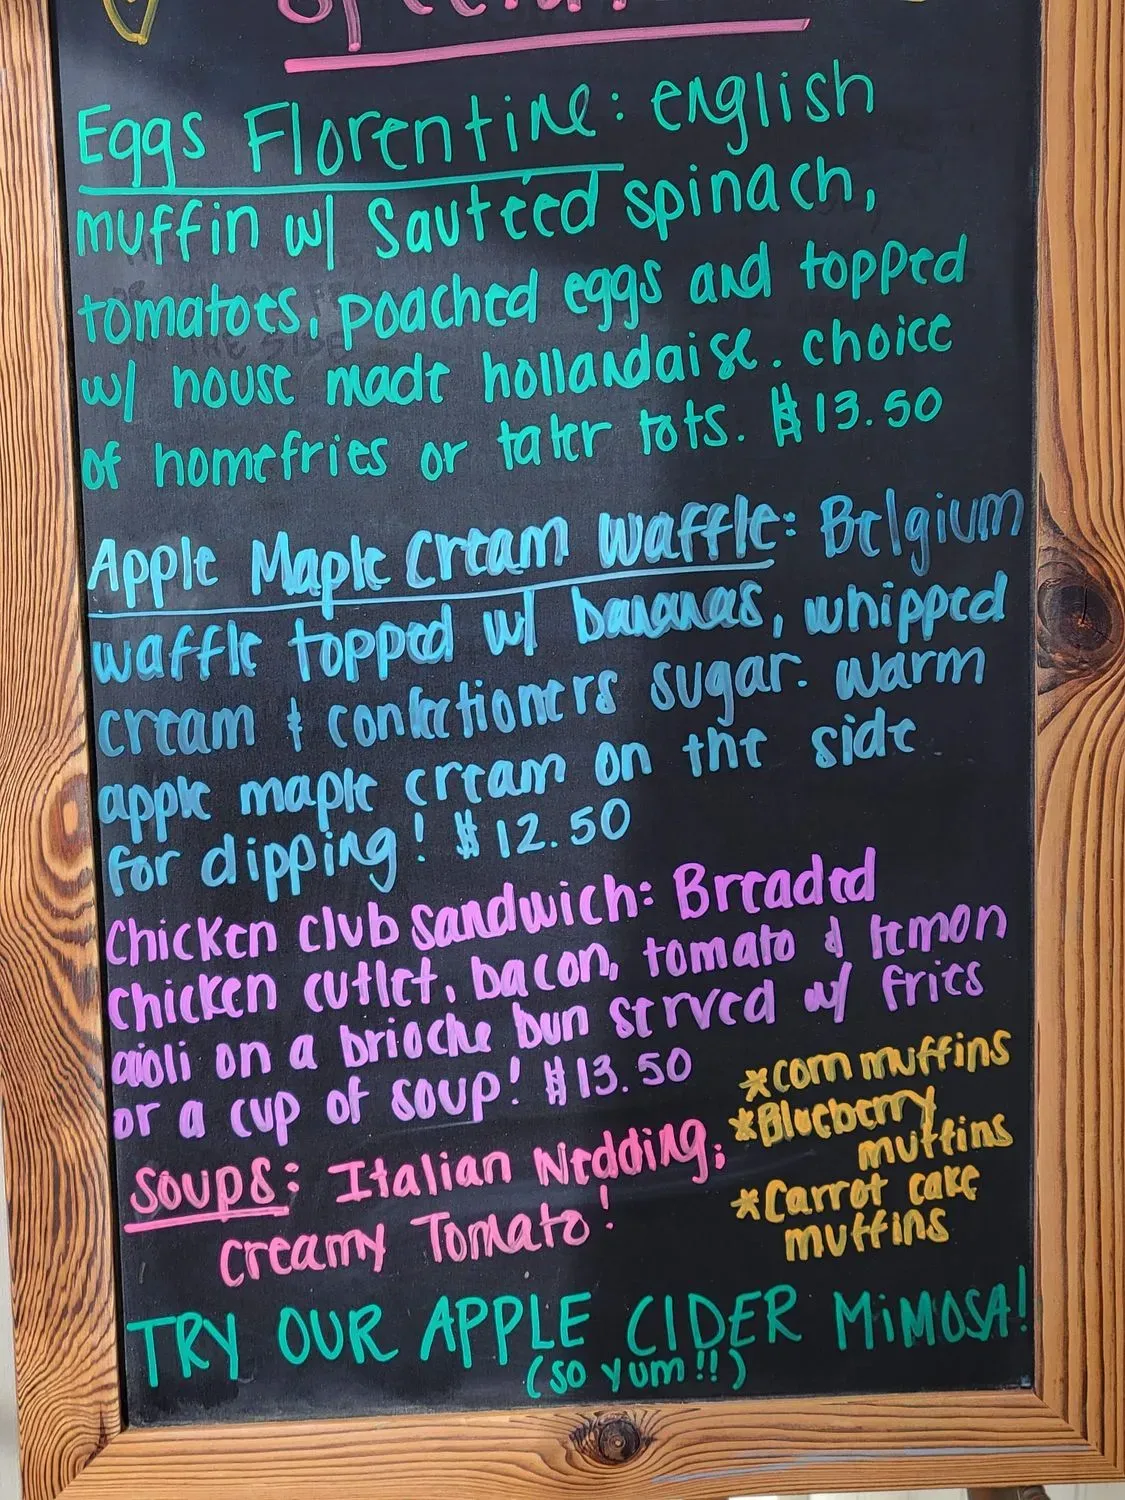 Specials
Eggs Florentine: english
muffin w/ Sautéed spinach,
tomatoes, poached eggs and topped
w/ house made hollandaise. choice
of homefries or tater tots. $13.50
Apple Maple Cream Waffle: Belgium
waffle topped w/ bananas, whipped
cream & confectioners sugar. warm
apple maple cream on the side
for dipping! $12.50
Chicken Club Sandwich: Breaded
chicken cutlet, bacon, tomato & lemon
aioli on a brioche bun served w/ fries
or a cup of soup! $13.50
*corn muffins
*Blueberry
muffins
*Carrot cake
muffins
Soups: Italian Wedding;
Creamy Tomato!
TRY OUR APPLE CIDER MiMOSA!
(so yum!!)